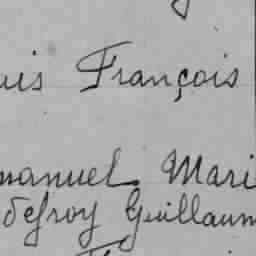 uis François
manuel Mari
defroy Guillaum